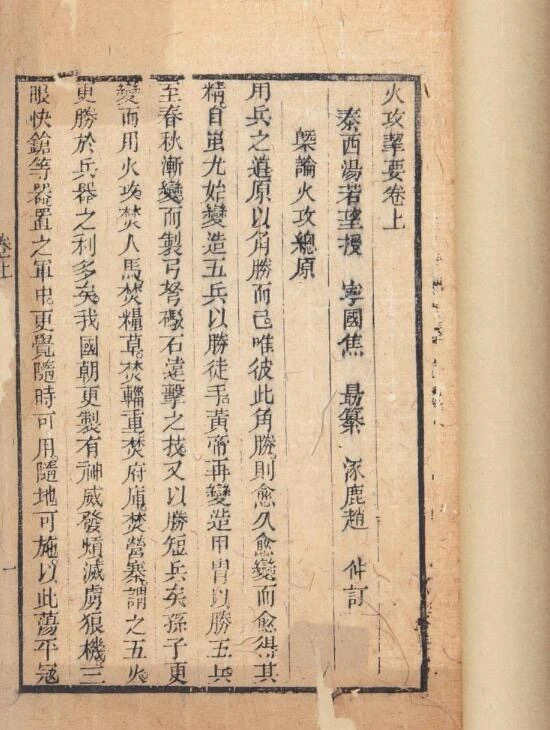 火攻挈要卷上
泰西湯若望授 寧國焦 勗纂 涿鹿趙 仲訂
槩論火攻總原
用兵之道原以角勝而已唯彼此角勝則愈久愈變而愈得其
精自蚩尤始變造五兵以勝徒手黃帝再變造甲胄以勝五兵
至春秋漸變而製弓弩礮石遠擊之技又以勝短兵矣孫子更
變而用火攻焚人馬焚糧草焚輜重焚府庫焚營寨謂之五火
更勝於兵器之利多矣我國朝更製有神威發熕滅虜狼機三
眼快鎗等器置之軍中更覺隨時可用隨地可施以此蕩平寇
卷上
一